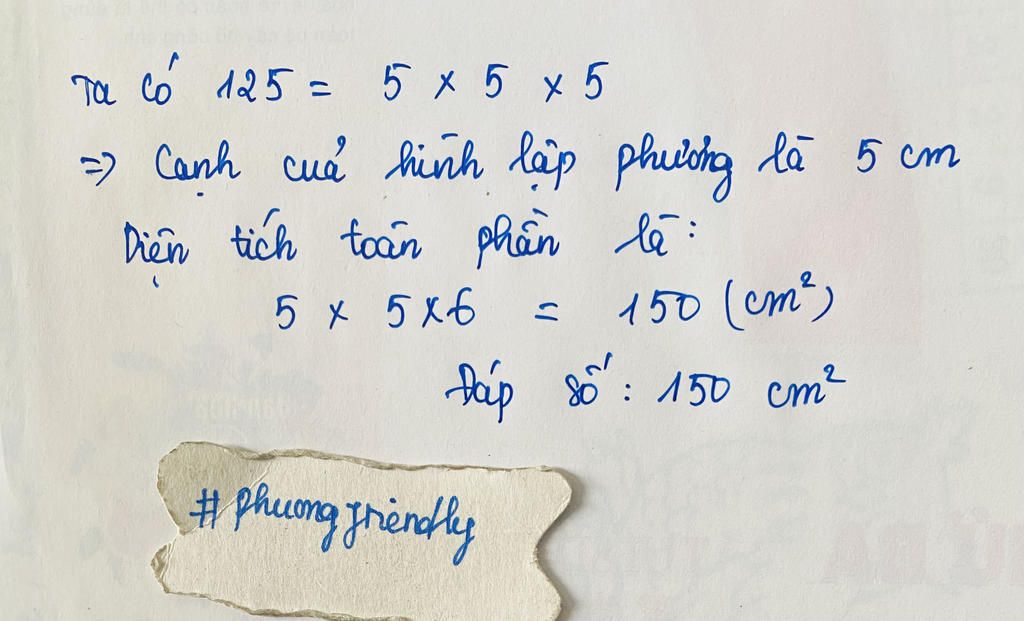 Ta có 125 = 5 x 5 x 5
=> Cạnh của hình lập phương là 5 cm
Diện tích toàn phần là:
5 x 5 x 6 = 150 (cm²)
Đáp số: 150 cm²
#phuongfriendly